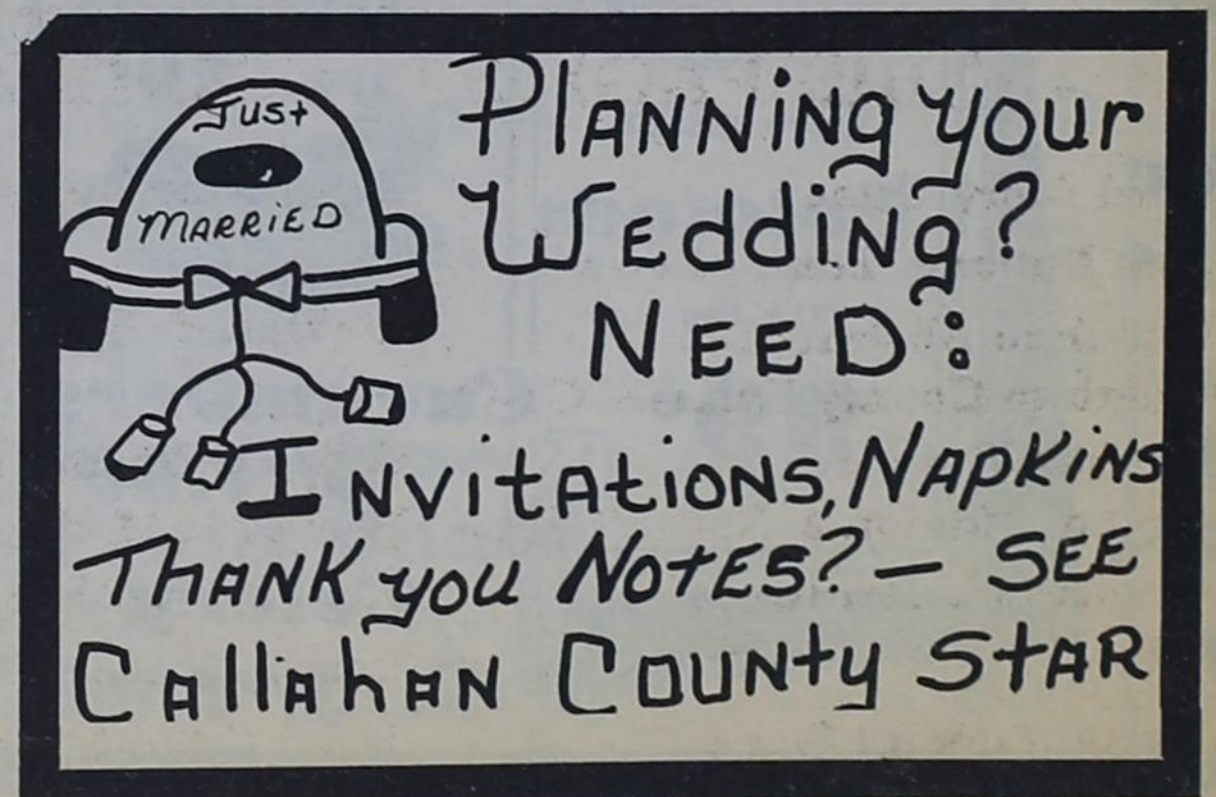 Just
MARRIED
Planning your
Wedding?
NEED:
Invitations, Napkins
Thank you Notes? — SEE
Callahan County Star